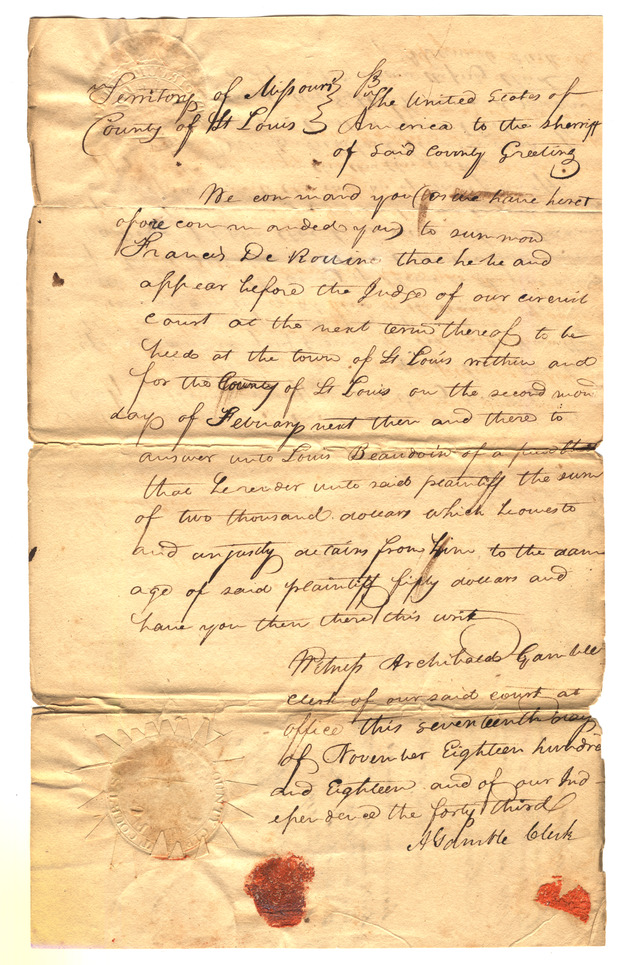 Territory of Missouri } The United States of
County of St Louis } America to the Sherriff
of Said County Greeting
We command you (as we have heret
ofore commanded you) to summon
Francis De Rouin that he be and
appear before the Judge of our circuit
court at the next term thereof to be
held at the town of St Louis within and
for the County of St Louis on the second mon
day of February next then and there to
answer unto Louis Beaudoin of a plea
that he render unto said plaintiff the sum
of two thousand dollars which he owes to
and unjustly detains from him to the dam
age of said plaintiff fifty dollars and
have you then there this writ
Witness Archibald Gamble
clerk of our said court at
office this seventeenth day
of November Eighteen hundred
and Eighteen and of our Ind-
ependence the forty third
A Gamble Clerk